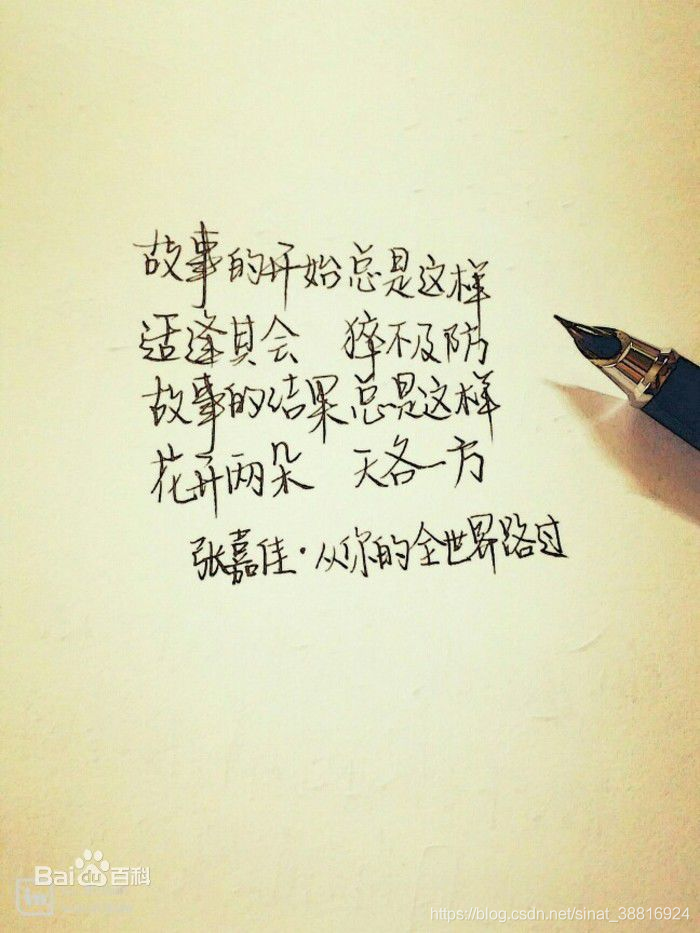 故事的开始总是这样
适逢其会 猝不及防
故事的结果总是这样
花开两朵 天各一方
张嘉佳·从你的全世界路过
Baidu百科
https://blog.csdn.net/sinat_38816924